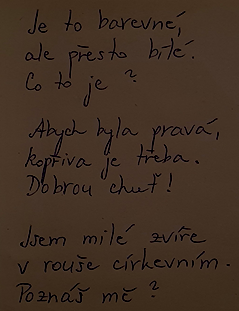 Je to barevné,
ale přesto bílé.
Co to je ?
Abych byla pravá,
kopřiva je třeba.
Dobrou chuť !
Jsem milé zvíře
v rouše církevním.
Poznáš mě ?